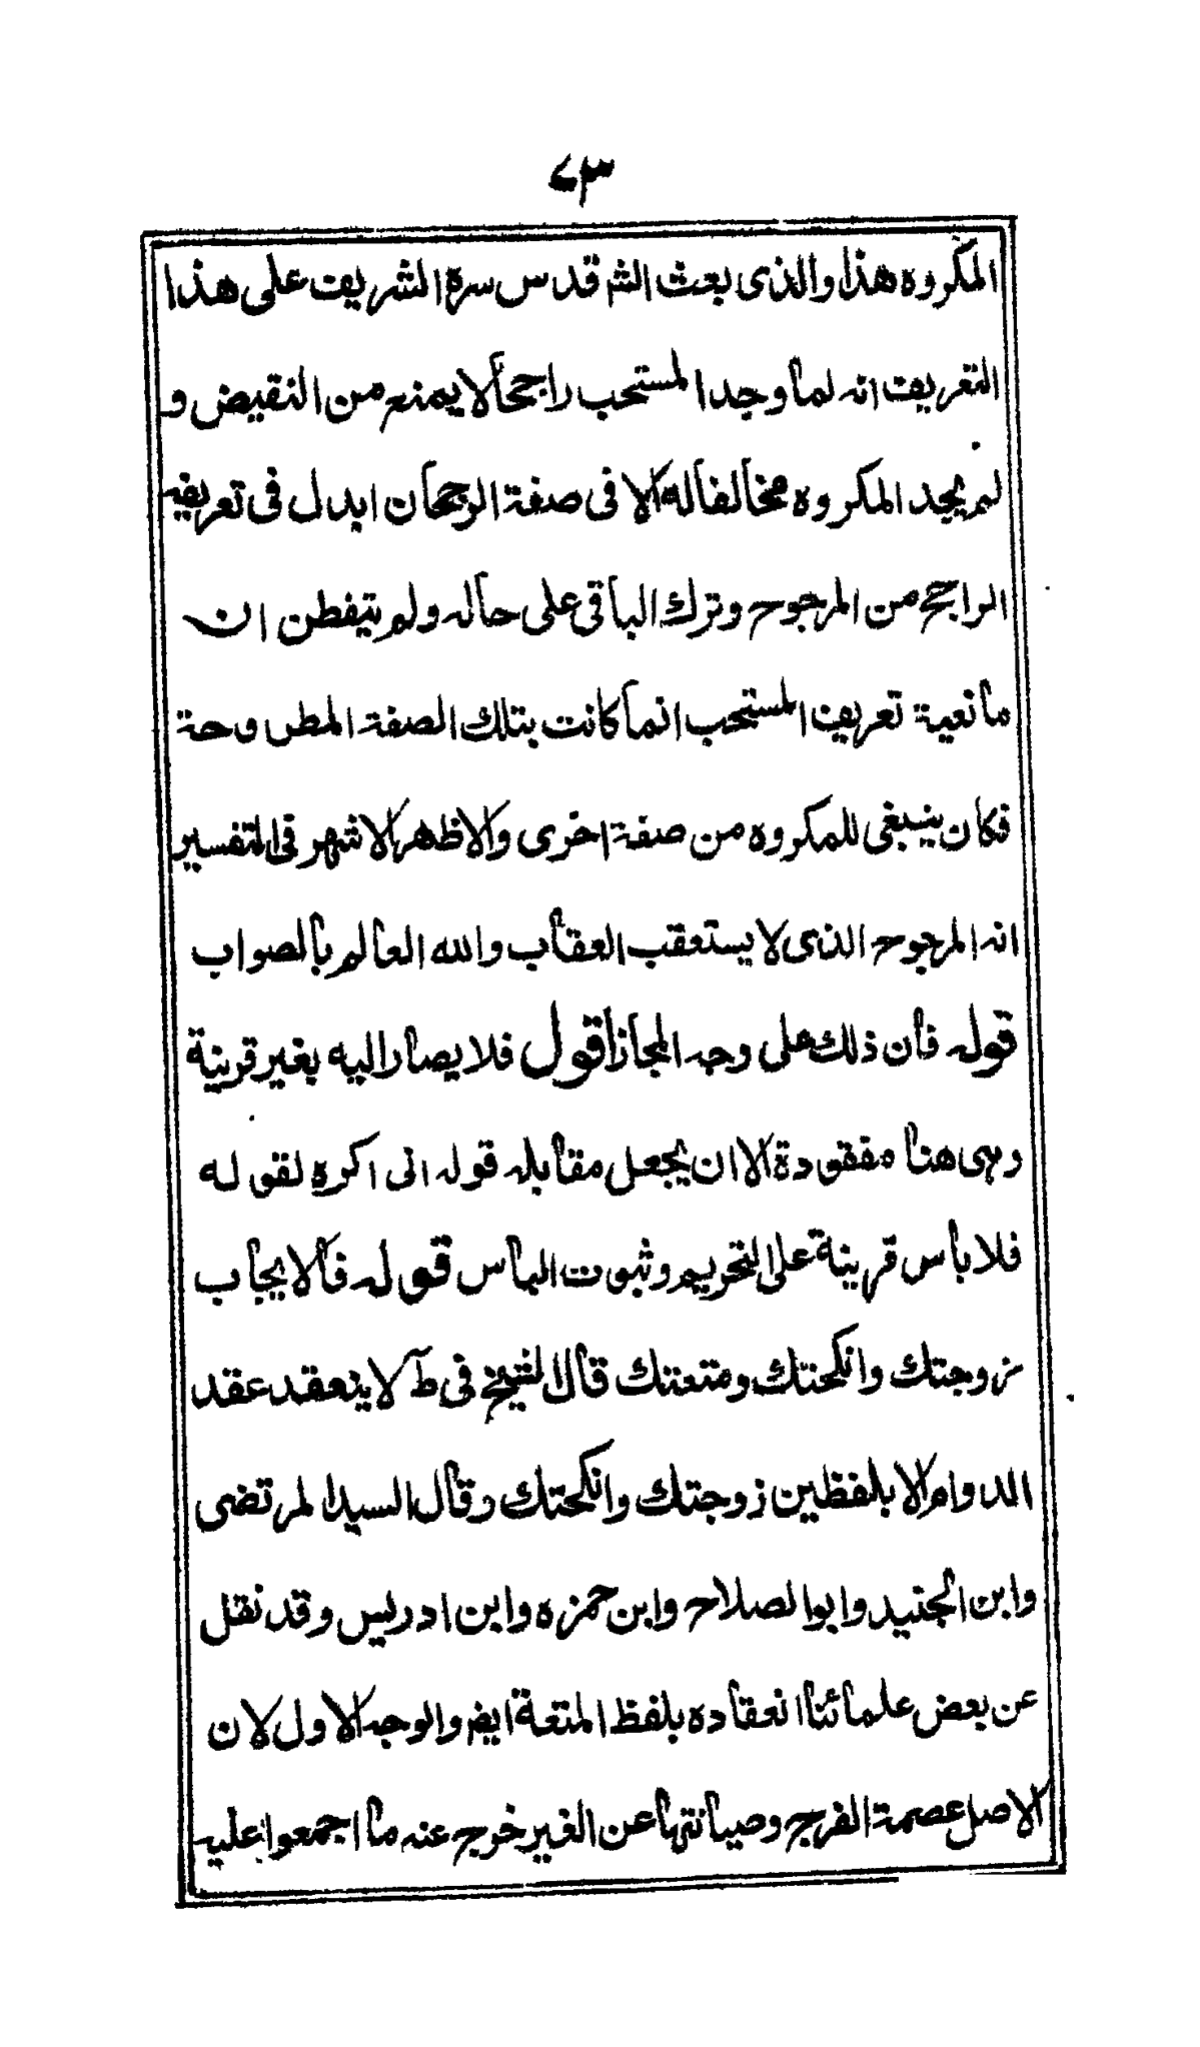 ٧٣
المكروه هذا والذى بعث الشه قدس سره الشريف على هذا
التعريف انه لما وجد المستحب راجحا لا يمنع من النقيض و
لم يجد المكروه مخالفا له الا فى صفة الرجحان ابدل فى تعريفه
الراجح من المرجوح وترك الباقى على حاله ولم يتفطن ان
مانعية تعريف المستحب انما كانت بتلك الصفة المطروحة
فكان ينبغى للمكروه من صفة اخرى والاظهر الاشهر فى التفسير
انه المرجوح الذى لا يستعقب العقاب والله العالم بالصواب
قوله فان ذلك على وجه المجاز اقول فلا يصار اليه بغير قرينة
وهى هنا مفقودة الا ان يجعل مقابله قوله انى اكره لقوله
فلا باس قرينة على التحريم وثبوت الباس قوله فالايجاب
زوجتك وانكحتك ومتعتك قال الشيخ فى ط لا ينعقد عقد
الدوام الا بلفظين زوجتك وانكحتك وقال السيد المرتضى
وابن الجنيد وابو الصلاح وابن حمزه وابن ادريس وقد نقل
عن بعض علمائنا انعقاده بلفظ المتعة ايض والوجه الاول لان
الاصل عصمة الفرج وصيانتها عن الغير خرج عنه ما اجمعوا عليه